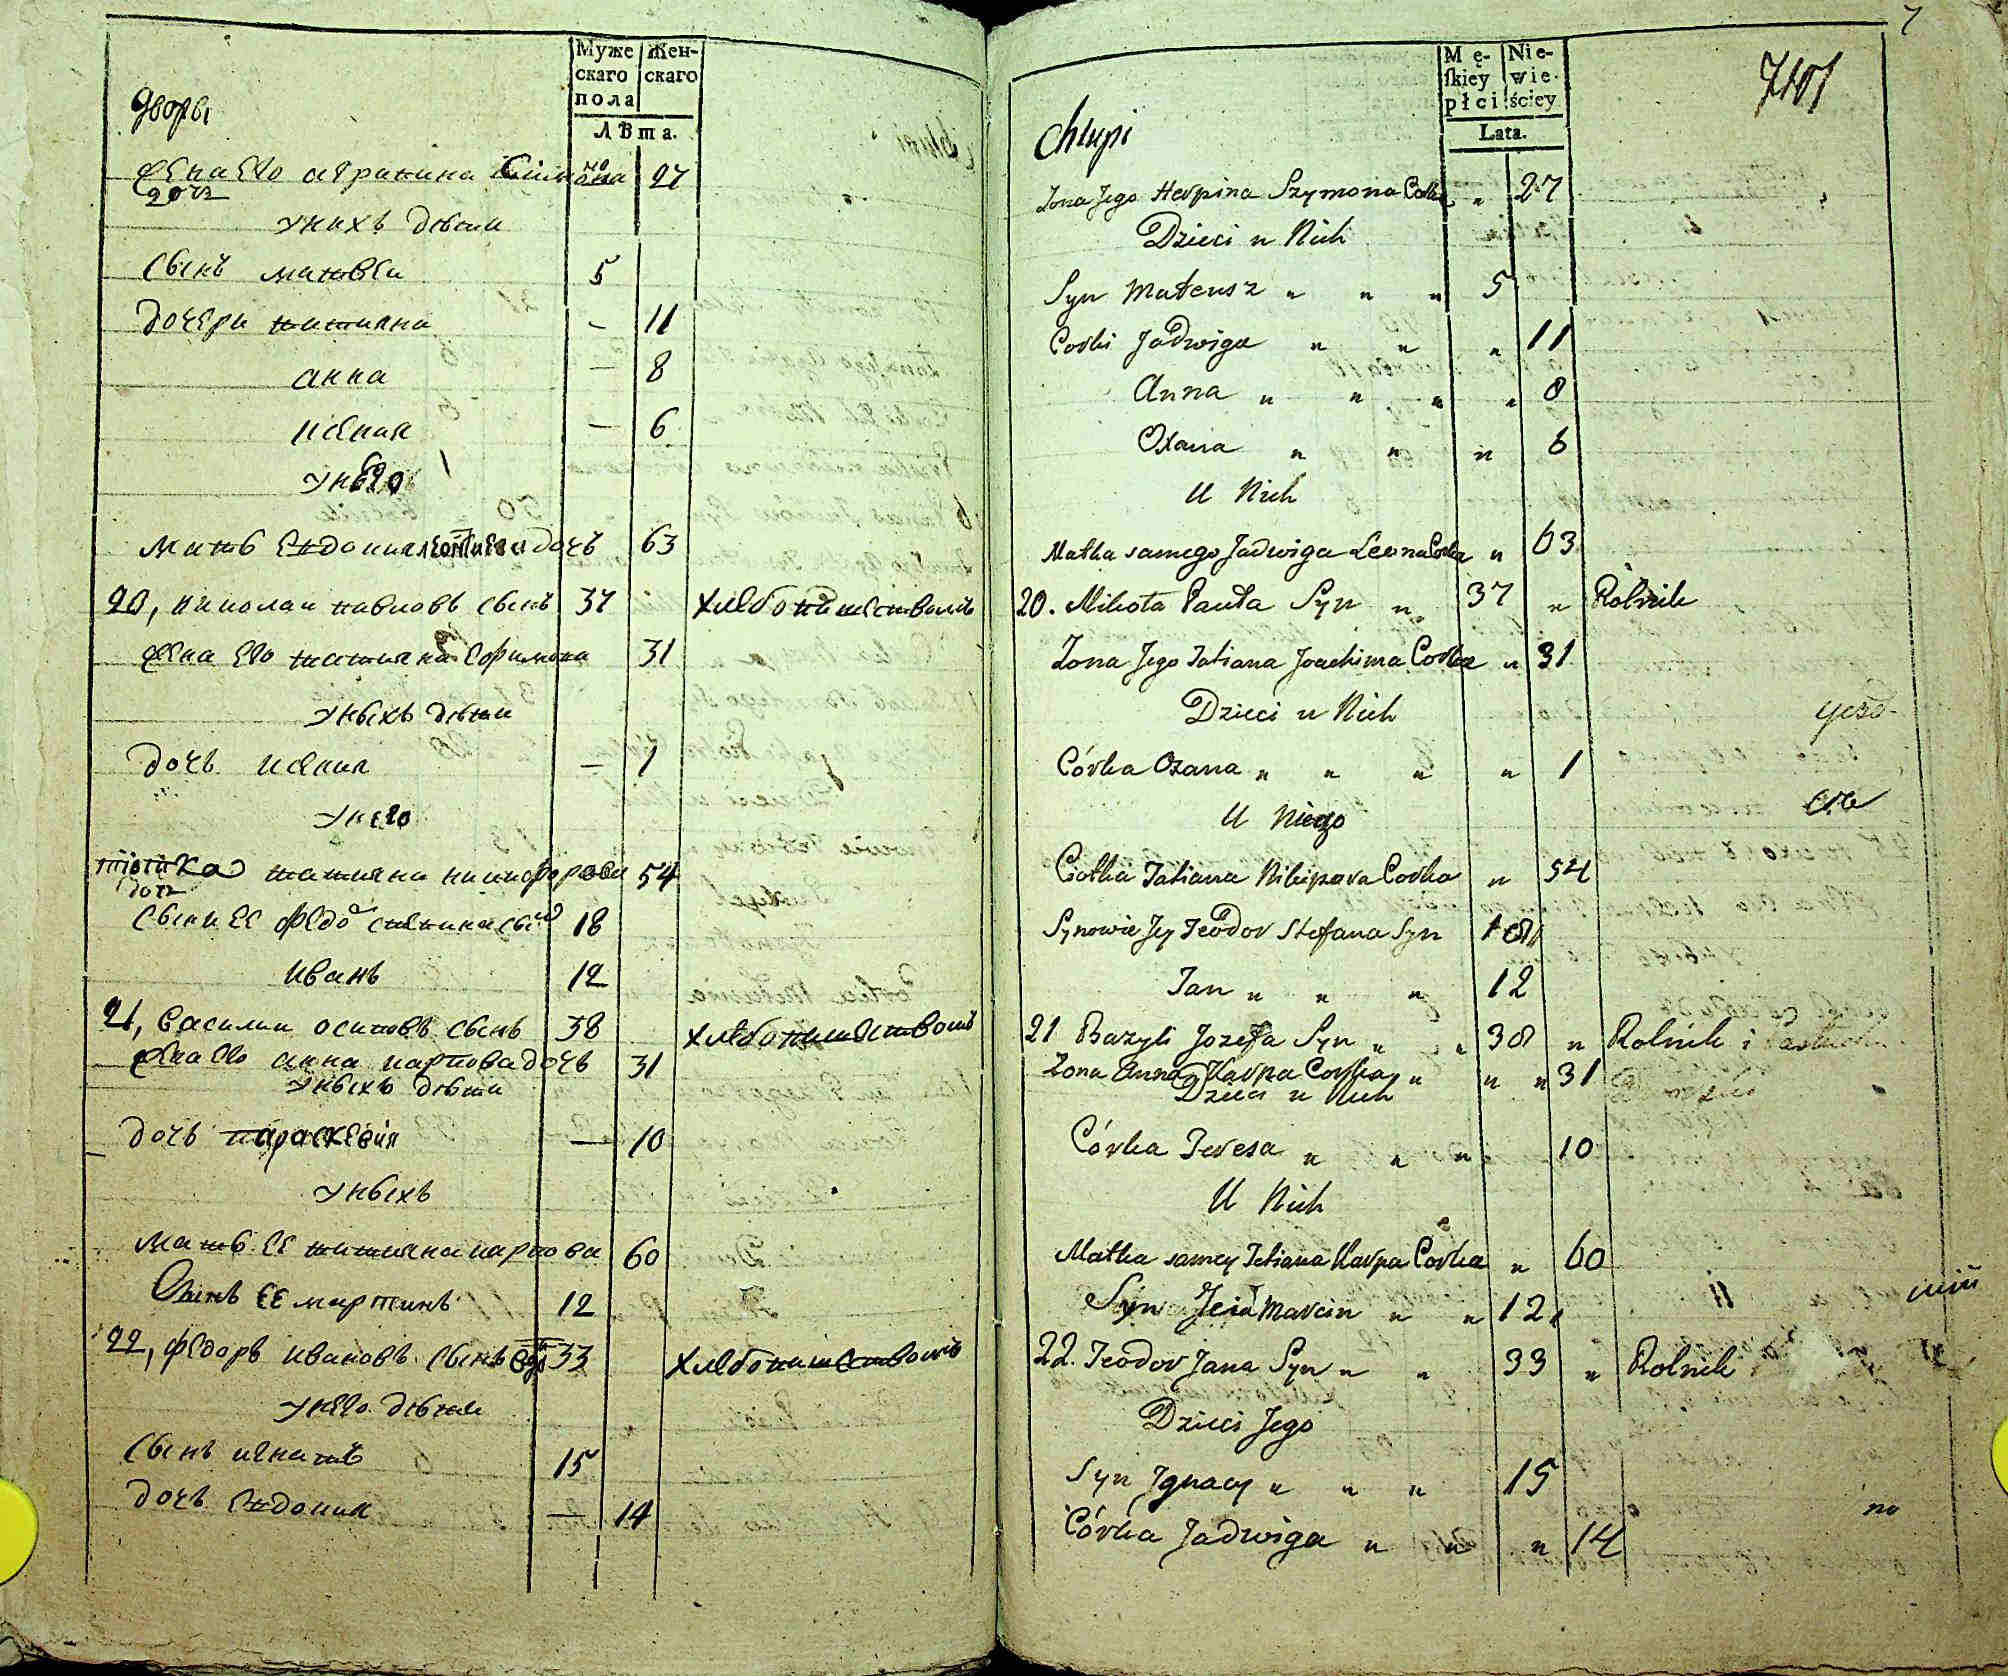 Муже
скаго
пола
Жен-
скаго
Лѣта.
дворы
жена Его агрипина Симона 27
дочь
у нихъ дѣти
сынъ матвеи 5
дочери татияна – 11
анна – 8
ксения – 6
у него
мать Евдокия леонтиева дочь 63
20, николаи павловъ сынъ 37 хлебопашествомъ
жена Его татияна Ефимова 31
у ныхъ дѣти
дочь ксения – 1
у него
тіотка татияна никифорова 54
дочь
сыни ЕЕ Федо степина сынъ 18
иванъ 12
21, василии осиповъ сынъ 38 хлебопашествомъ
жена Его анна карпова дочь 31
у ныхъ дѣти
дочь параскевия – 10
у ныхъ
мать ЕЕ татияна карпова 60
Сынъ ЕЕ мартинъ 12
22, Федоръ ивановъ сынъ 33 хлебопашествомъ
у него дѣти
сынъ игнатъ 15
дочь Евдокия – 14
7
Mę-
skiey
płci
Nie-
wie-
ściey
Lata.
Chłupi
Zona Jego Herpina Szymona Corka „ 27
Dzieci u Nich
Syn Mateusz „ „ „ 5
Corki Jadwiga „ „ „ 11
Anna „ „ „ „ 8
Oxana „ „ „ 6
U Nich
Matka samego Jadwiga Leona Corka „ 63
20. Mikoła Pauła Syn „ 37 „ Rolnik
Zona Jego Tatiana Joachima Corka „ 31
Dzieci u Nich
Córka Oxana „ „ „ „ 1
U Niego
Ciotka Tatiana Nikipora Corka „ 54
Synowie Jey Teodor Stefana Syn 18
Jan „ „ „ 12
21 Bazyli Jozefa Syn „ „ 38 „ Rolnik i
Zona Anna Karpa Corka „ „ „ 31
Dzieci u Nich
Córka Teresa „ „ „ 10
U Nich
Matka samey Tatiana Karpa Corka „ 60
Syn Jeia Marcin „ „ 12
22. Teodor Jana Syn „ „ 33 „ Rolnik
Dzieci Jego
Syn Ignacy „ „ „ 15
Córka Jadwiga „ „ „ 14